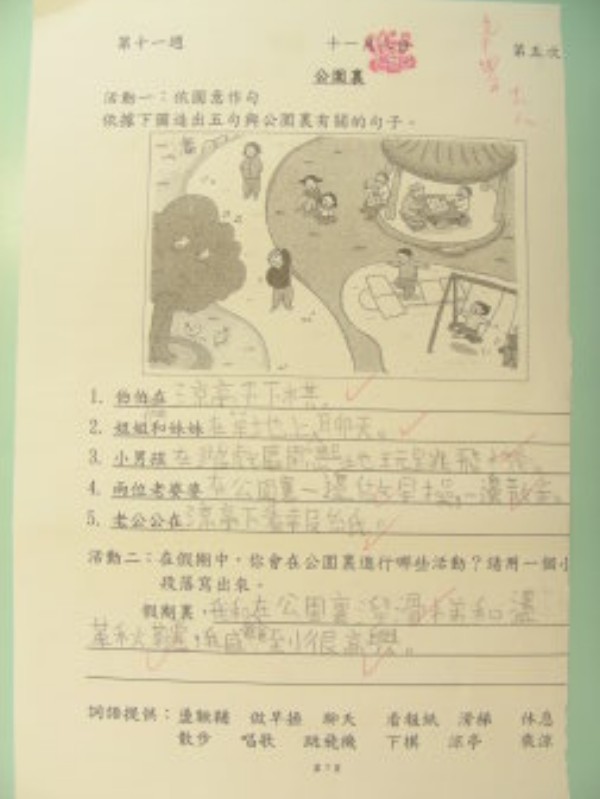 第十一週 十一月 第五次
公園裏
活動一：依圖意作句
依據下圖造出五句與公園裏有關的句子。
1. 伯伯在涼亭下下棋。
2. 姐姐和妹妹在草地上聊天。
3. 小男孩在地玩跳飛機。
4. 兩位老婆婆在公園裏一邊做早操，一邊散步。
5. 老公公在涼亭下看報紙。
活動二：在假期中，你會在公園裏進行哪些活動？請用一個小
段落寫出來。
假期裏，我和在公園裏滑梯和盪
感到很高興。
詞語提供：盪鞦韆 做早操 聊天 看報紙 滑梯 休息
散步 唱歌 跳飛機 下棋 涼亭 乘涼